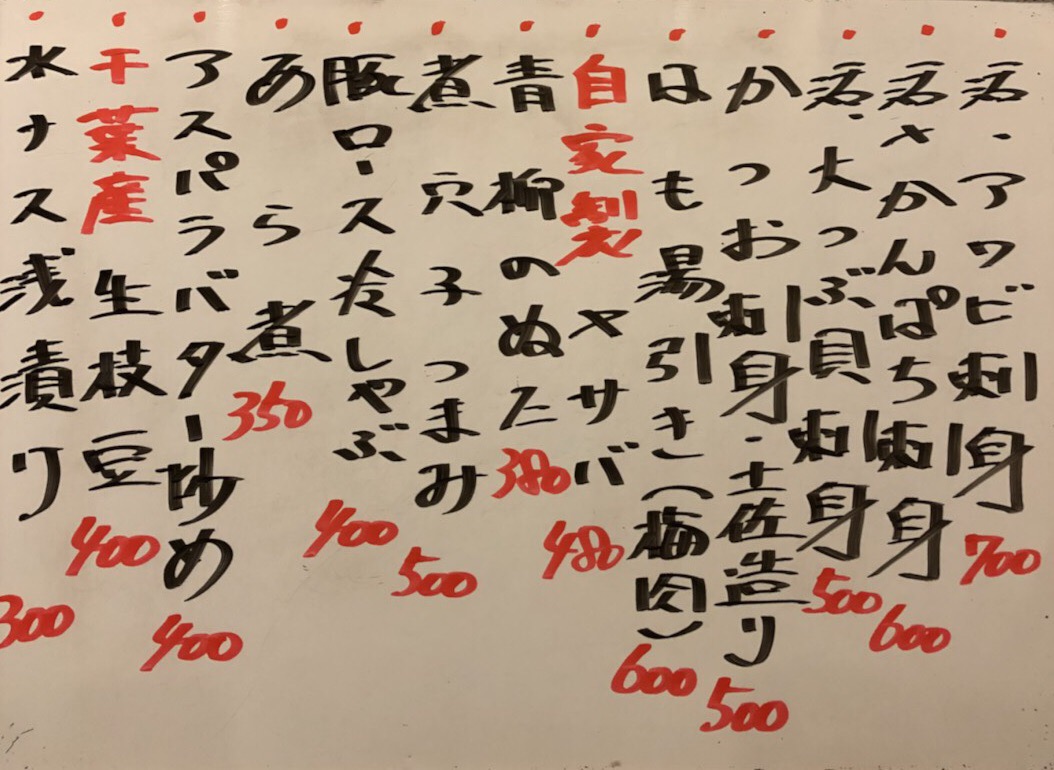 活・アワビ刺身 700
活〆かんぱち刺身 600
活・大つぶ貝刺身 500
かつお刺身・土佐造り 500
はも湯引き(梅肉) 600
自家製〆サバ 480
青柳のぬた 380
煮穴子つまみ 500
豚ロース冷しゃぶ 400
あら煮 350
アスパラバター炒め 400
千葉産生枝豆 400
水ナス浅漬り 300